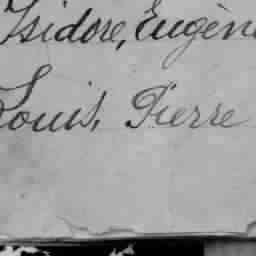 Isidore, Eugène
Louis, Pierre